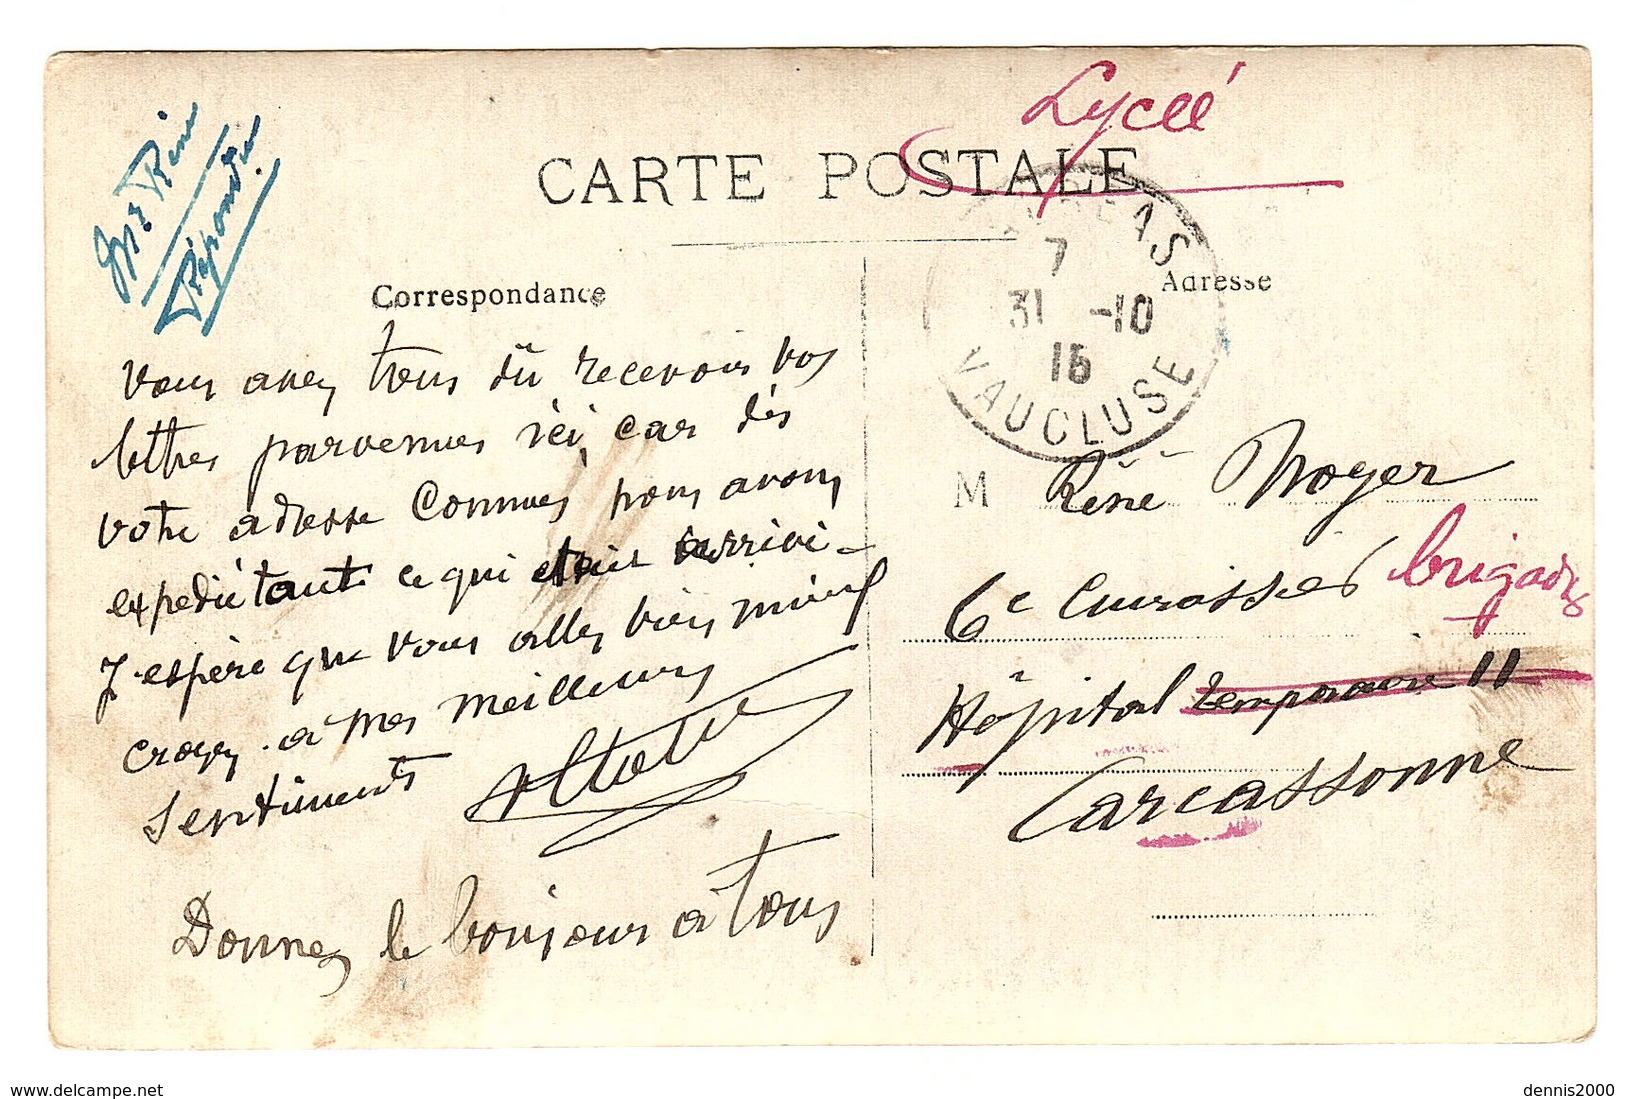 Lycée
CARTE POSTALE
Mr René
Répondu
Correspondance
Adresse
7
31 -10
15
VAUCLUSE
vous avez tous dû recevoir vos
lettres parvenues ici car dès
votre adresse connues nous avons
expédié tout ce qui était arrivé -
J'espère que vous allez bien mieux
croyez à mes meilleurs
sentiments
Donnez le bonjour à tous
M René Noyer
6e Cuirassier brigadier
Hôpital temporaire 11
Carcassonne
www.delcampe.net
dennis2000